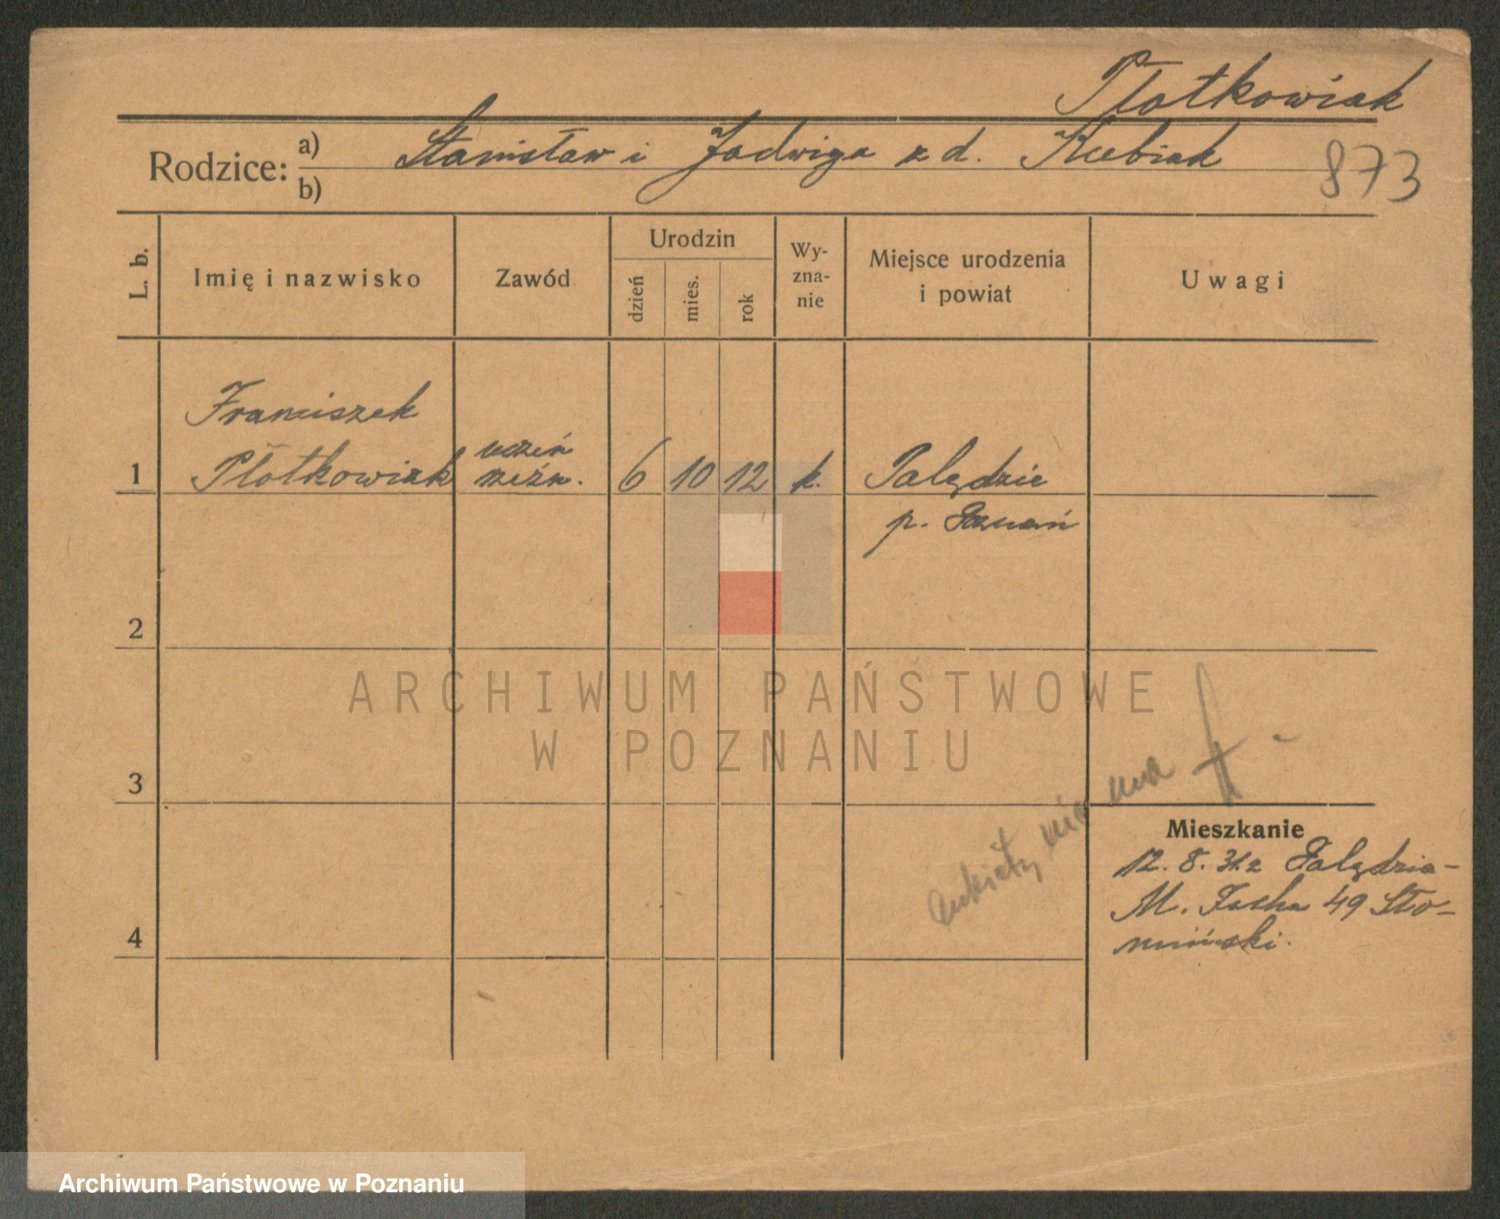 Płotkowiak
Rodzice: a) Stanisław i Jadwiga z d. Kubiak
b)
873
L. b.
Imię i nazwisko
Zawód
Urodzin
dzień
mies.
rok
Wy-
zna-
nie
Miejsce urodzenia
i powiat
Uwagi
Franciszek
1 Płotkowiak uczeń rzeźn. 6 10 12 k. Palędzie
p. Poznań
2
ARCHIWUM PAŃSTWOWE
W POZNANIU
3
ankiety nie ma
Mieszkanie
12. 8. 31 z Palędzia-
M. Focha 49 Sło-
miński.
4
Archiwum Państwowe w Poznaniu